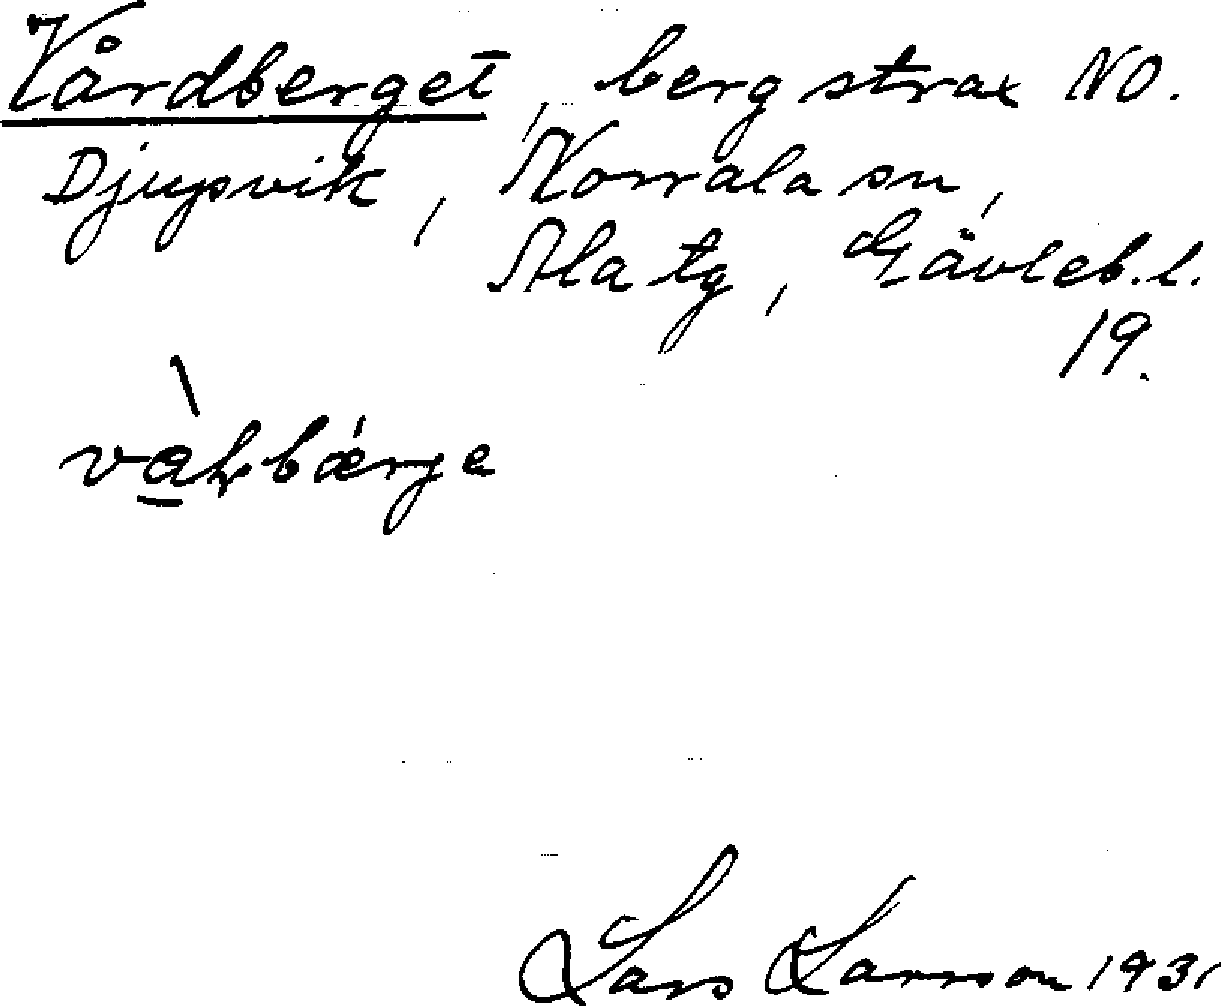 Vårdberget, berg strax NO.
Djupsvik, Norrala sn,
Ala tg, Gävleb. l.
19.
Lars Larsson 1931